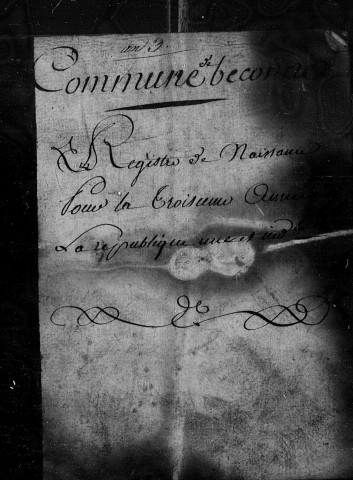 an 3.
Commune de becon
Registre de Naissance
Pour la Troisieme Année
La republique une et ind